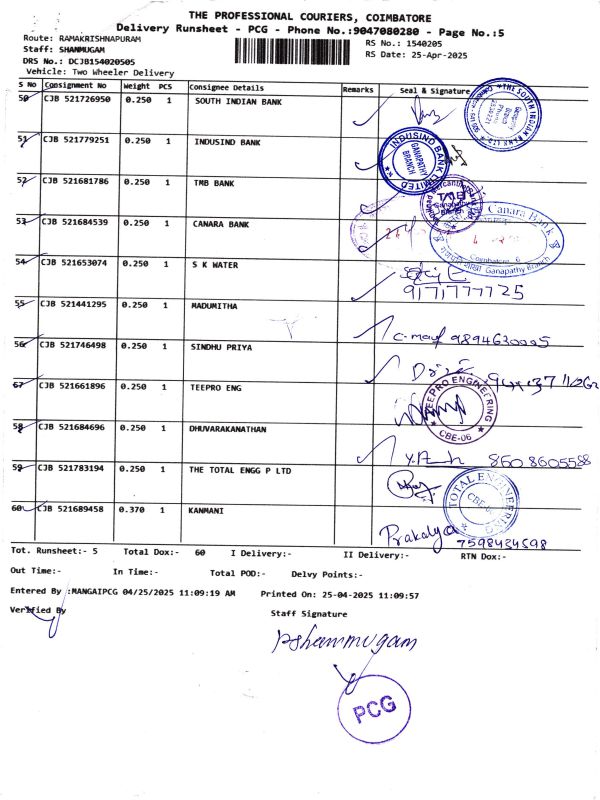 THE PROFESSIONAL COURIERS, COIMBATORE
Delivery Runsheet - PCG - Phone No.:9047080280 - Page No.:5
Route: RAMAKRISHNAPURAM
RS No.: 1540205
Staff: SHANMUGAM
RS Date: 25-Apr-2025
DRS No.: DCJB154020505
Vehicle: Two Wheeler Delivery
S No Consignment No Weight PCS Consignee Details Remarks Seal & Signature
50 CJB 521726950 0.250 1 SOUTH INDIAN BANK
51 CJB 521779251 0.250 1 INDUSIND BANK
INDUSIND BANK LIMITED GANAPATHY BRANCH
52 CJB 521681786 0.250 1 TMB BANK
TMB Ganapathy Branch
53 CJB 521684539 0.250 1 CANARA BANK
Canara Bank
Coimbatore 6
Ganapathy Branch
54 CJB 521653074 0.250 1 S K WATER
9171777725
55 CJB 521441295 0.250 1 MADUMITHA
56 CJB 521746498 0.250 1 SINDHU PRIYA
57 CJB 521661896 0.250 1 TEEPRO ENG
TEEPRO ENGINEERING CBE-06
58 CJB 521684696 0.250 1 DHUVARAKANATHAN
8608605588
59 CJB 521783194 0.250 1 THE TOTAL ENGG P LTD
TOTAL ENGINEERING CBE-6
60 CJB 521689458 0.370 1 KANMANI
Prakalya
7598434598
Tot. Runsheet:- 5 Total Dox:- 60 I Delivery:- II Delivery:- RTN Dox:-
Out Time:- In Time:- Total POD:- Delvy Points:-
Entered By :MANGAIPCG 04/25/2025 11:09:19 AM Printed On: 25-04-2025 11:09:57
Verified By Staff Signature
PShanmugam
PCG